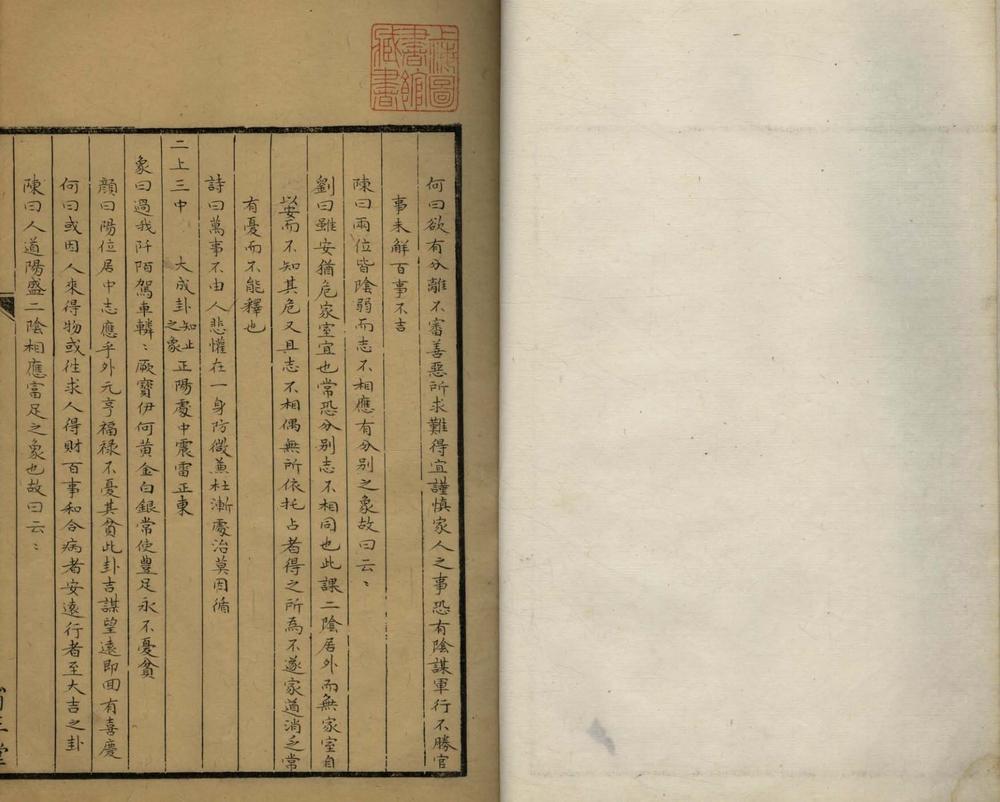 上海圖書館藏書
何曰欲有分離不審善惡所求難得宜謹慎家人之事恐有陰謀軍行不勝官
事未解百事不吉
陳曰兩位皆陰弱而志不相應有分別之象故曰云〻
劉曰雖安猶危家室宜也常恐分别志不相同也此課二陰居外而無家室自
以安而不知其危又且志不相偶無所依托占者得之所為不遂家道消乏常
有憂而不能釋也
詩曰萬事不由人悲懽在一身防微兼杜漸處治莫因循
二上三中 大成卦 知止之象 正陽處中震雷正東
象曰過我阡陌駕車轔〻厥寶伊何黄金白銀常使豊足永不憂貧
顔曰陽位居中志應乎外元亨福禄不憂其貧此卦吉謀望遠即回有喜慶
何曰或因人來得物或往求人得財百事和合病者安遠行者至大吉之卦
陳曰人道陽盛二陰相應富足之象也故曰云〻